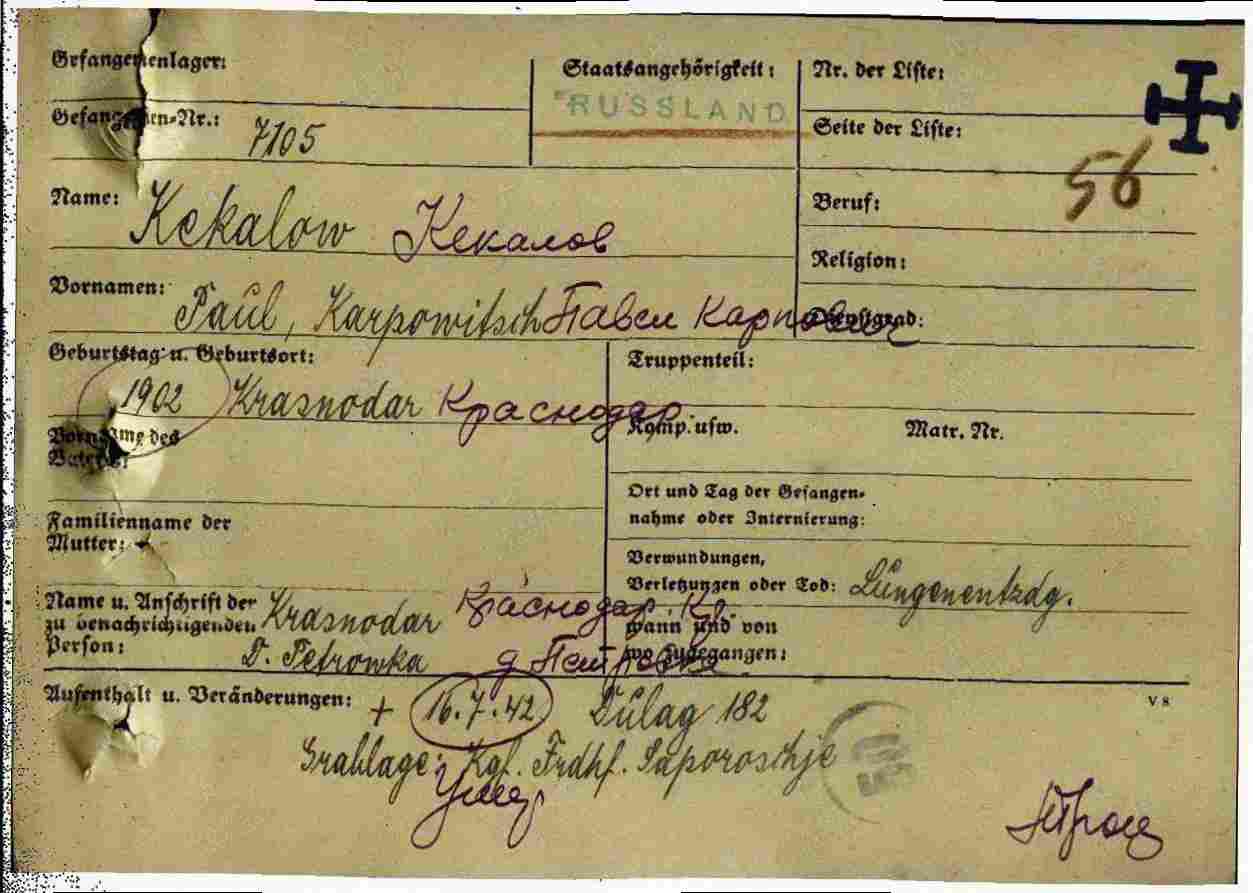 Gefangenenlager:
Staatsangehörigkeit:
Nr. der Liste:
RUSSLAND
Gefangenen-Nr.: 7105
Seite der Liste:
56
Name: Kekalow Кекалов
Beruf:
Religion:
Vornamen: Paul, Karpowitsch Павел Карпович
Dienstgrad:
Geburtstag u. Geburtsort:
1902 Krasnodar Краснодар
Truppenteil:
Komp. usw. Matr. Nr.
Vorname des
Vaters:
Ort und Tag der Gefangen-
nahme oder Internierung:
Familienname der
Mutter:
Verwundungen,
Verletzungen oder Tod: Lungenentzdg.
Name u. Anschrift der
zu benachrichtigenden
Person:
Krasnodar Краснодар. Кр.
D. Petrowka д Петровка
wann und von
wo zugegangen:
Aufenthalt u. Veränderungen: + 16.7.42 Dulag 182
V 8
Grablage: Kgf. Frdhf. Saporoschje
Умер